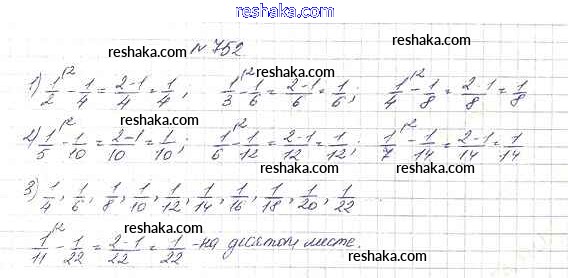 www.reshaka.com
reshaka.com
№752
reshaka.com reshaka.com
1) 1/2 \2 - 1/4 = 2-1/4 = 1/4, 1/3 \2 - 1/6 = 2-1/6 = 1/6; 1/4 \2 - 1/8 = 2-1/8 = 1/8
reshaka.com
2) 1/5 \2 - 1/10 = 2-1/10 = 1/10; 1/6 \2 - 1/12 = 2-1/12 = 1/12; 1/7 \2 - 1/14 = 2-1/14 = 1/14
reshaka.com reshaka.com
3) 1/4, 1/6, 1/8, 1/10, 1/12, 1/14, 1/16, 1/18, 1/20, 1/22 ...
reshaka.com
1/11 \2 - 1/22 = 2-1/22 = 1/22 - на десятом месте.
reshaka.com reshaka.com